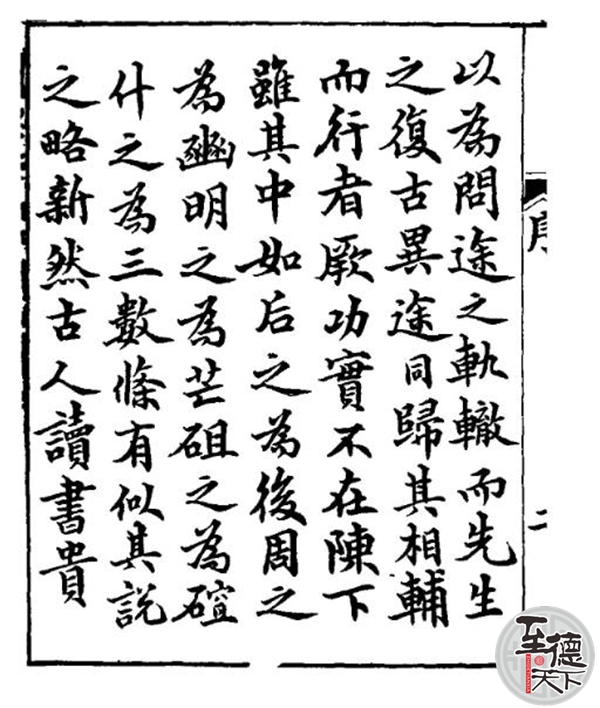 以為問途之軌轍而先生
之復古異途同歸其相輔
而行者厥功實不在陳下
雖其中如后之為後周之
為豳明之為芒砠之為碹
什之為三數條有似其說
之略新然古人讀書貴
序
二
至德天下